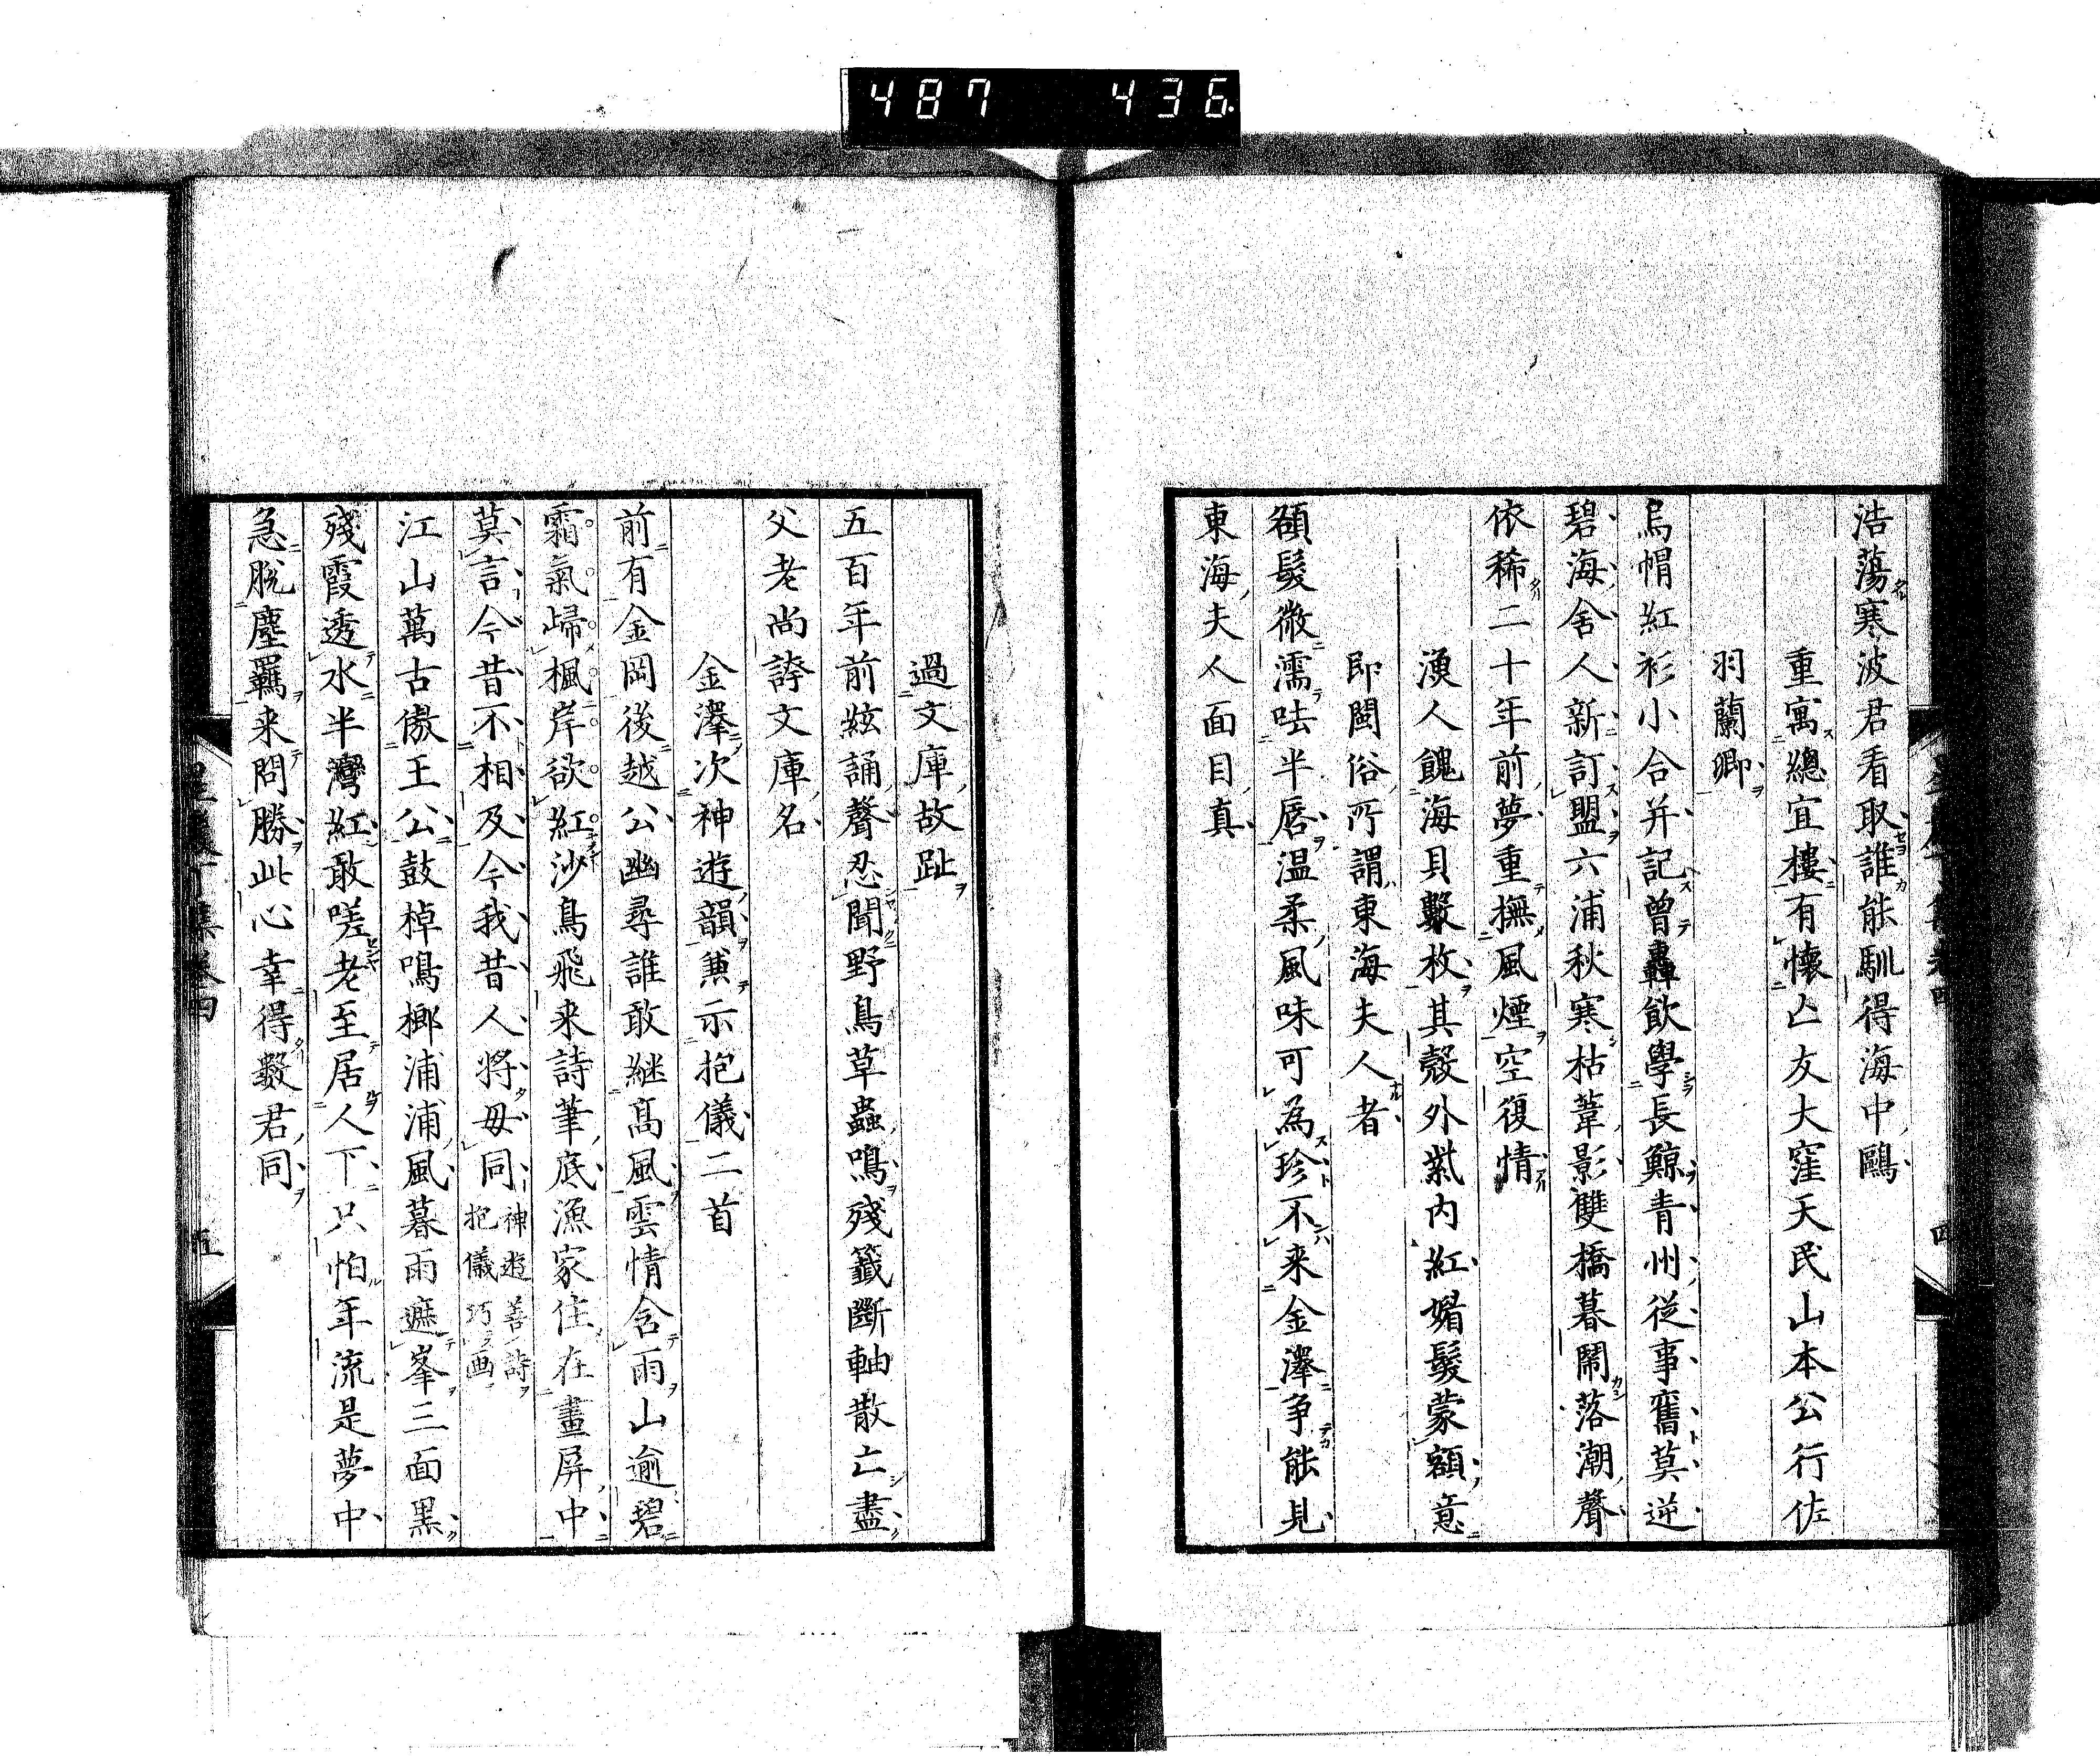 487 436
浩蕩寒波君看取誰能馴得海中鷗
重寓總宜樓有懷亡友大窪天民山本公行佐
羽蘭卿
烏帽紅衫小合并記曾轟飲學長鯨青州從事舊莫逆
碧海舍人新訂盟六浦秋寒枯葦影雙橋暮鬧落潮聲
依稀二十年前夢重撫風煙空復情
漁人餽海貝數枚其殼外紫内紅媚髮蒙額意
即閩俗所謂東海夫人者
額髮微濡呿半唇温柔風味可為珍不来金澤争能見
東海夫人面目真
過文庫故趾
五百年前絃誦聲忍聞野鳥草蟲鳴殘籤斷軸散亡盡
父老尚誇文庫名
金澤次神遊韻兼示抱儀二首
前有金岡後越公幽尋誰敢継髙風雲情含雨山逾碧
霜氣歸楓岸欲紅沙鳥飛来詩筆底漁家住在畫屏中
莫言今昔不相及今我昔人将毋同 神遊善詩抱儀巧画
江山萬古傲王公鼓棹鳴榔浦浦風暮雨遮峯三面黒
殘霞透水半灣紅敢嗟老至居人下只怕年流是夢中
急脱塵羈来問勝此心幸得數君同